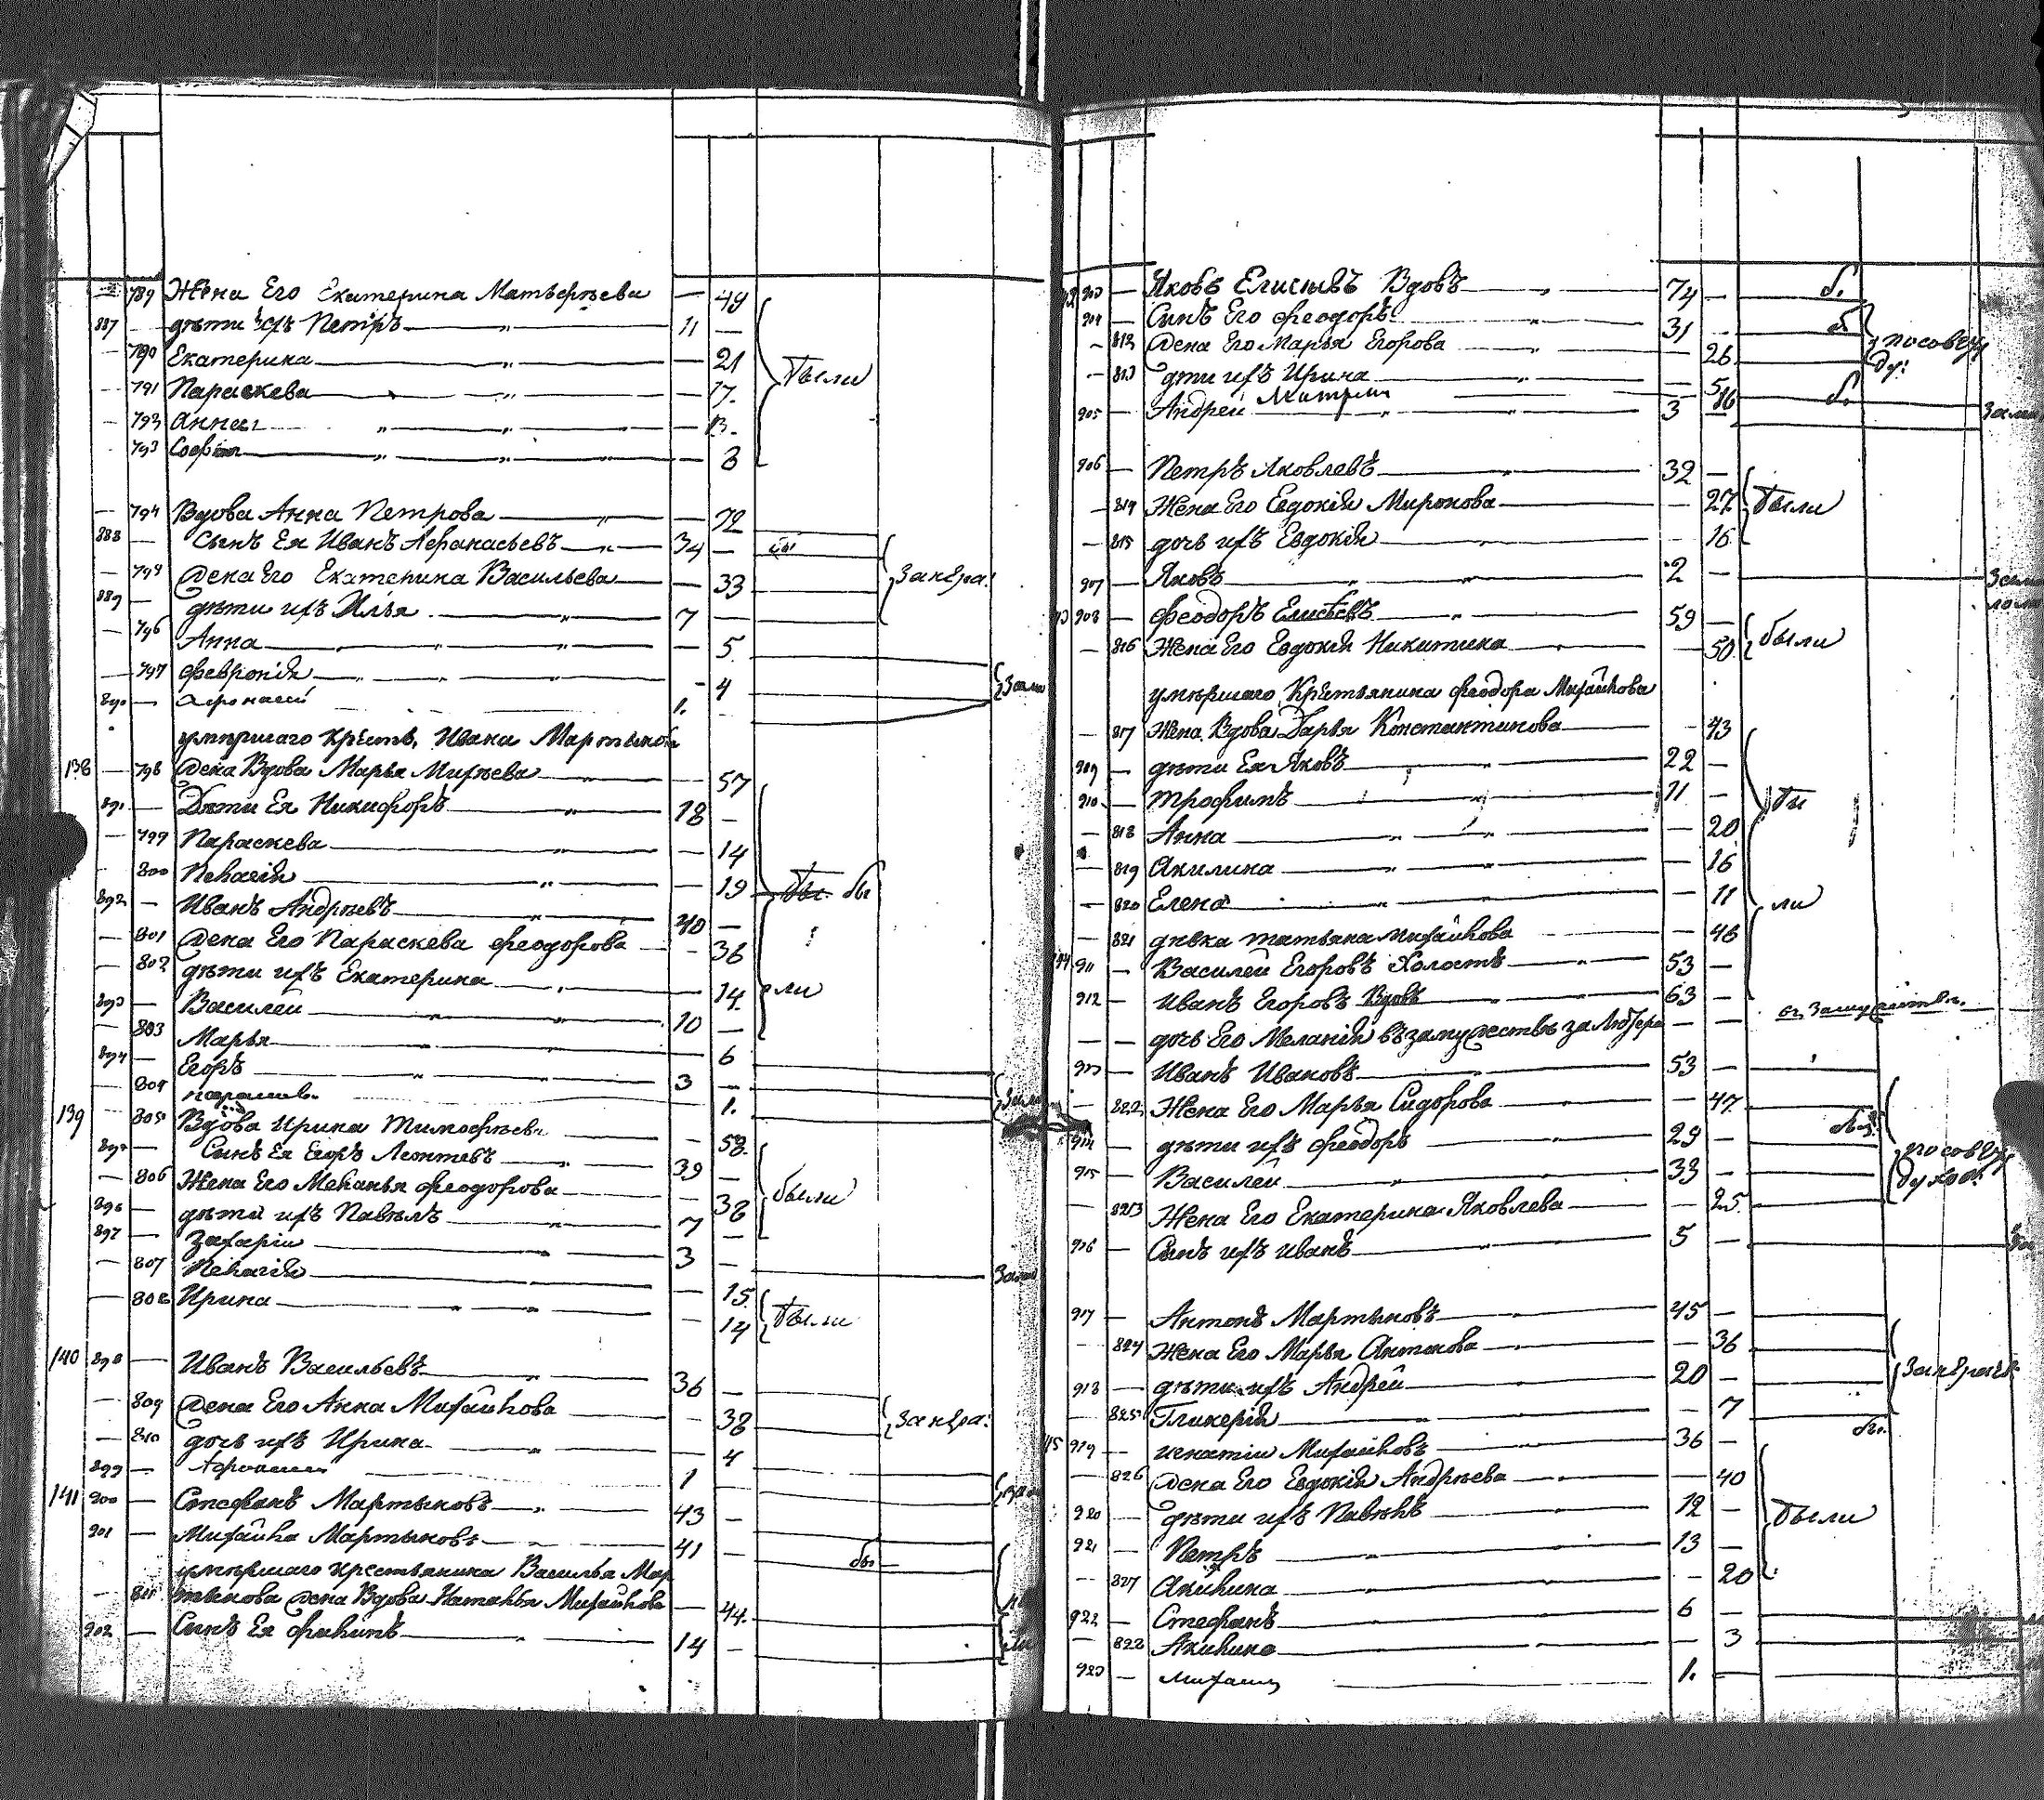 789 Жена Его Екатерина Матверѣева — 49
887 — дѣти ихъ Петръ — 11 —
— 790 Екатерина — 21 были
— 791 Параскева — 17.
— 792 Анна — 13.
793 Софія — 8
— 794 Вдова Анна Петрова — 72
888 — Сынъ Ея Иванъ Афанасьевъ — 34 — бы
— 795 жена Его Екатерина Васильева — 33 За нера:
889 — дѣти ихъ Илья 7 —
— 796 Анна — 5
— 797 Февронія — 4
890 — Афонасій 1.
умершаго Крестъ. Ивана Мартынова
138 — 798 жена Вдова Марья Михѣева — 57
891 — Дѣти Ея Никифоръ 18 —
— 799 Параскева — 14
— 800 Пелагія — 19 бы
892 — Иванъ Андрѣевъ 40 —
— 801 жена Его Параскева Феодорова — 36
— 802 дѣти ихъ Екатерина 14. ли
893 — Василей 10 —
— 803 Марья 6
894 — Егоръ 3 —
— 804 1.
139 — 805 Вдова Ирина Тимофѣева — 58.
895 — Сынъ Ея Егоръ Леонтевъ 39 —
— 806 Жена Его Меланья Феодорова — 38 были
896 — дѣти ихъ Павелъ 7 —
897 — Захарій 3 —
— 807 Пелагія — 15
— 808 Ирина — 14 были
140 898 — Иванъ Васильевъ 36 —
— 809 жена Его Анна Михайлова — 38 За нера:
— 810 дочь ихъ Ирина 4
899 — 1
141 900 — Стефанъ Мартыновъ 43 —
901 — Михайла Мартыновъ 41 — бы
умершаго крестьянина Василья Мар
— 811 тынова жена Вдова Наталья Михайлова — 44.
902 — Сынъ Ея Филипъ 14 —
903 — Яковъ Елисѣевъ Вдовъ 74 — б.
904 — Сынъ Его Феодоръ 31 — б
— 812 жена Его Марья Егорова — 26 по совѣту
— 813 дѣти ихъ Ирина — 5 ду:
905 — Андрей 3
906 — Петръ Яковлевъ 32 —
— 814 Жена Его Евдокія Миронова — 27 были
— 815 дочь ихъ Евдокія — 16
907 — Яковъ 2 —
908 — Феодоръ Елисѣевъ 59 —
— 816 Жена Его Евдокія Никитина — 50 были
умершаго Крестьянина Феодора Михайлова
— 817 Жена Вдова Дарья Константинова — 43
909 — дѣти Ея Яковъ 22 —
910 — Трофимъ 11 — бы
— 818 Анна — 20
— 819 Акилина — 16
— 820 Елена — 11 ли
— 821 дѣвка татьяна михайлова — 46
911 — Василей Егоровъ Холостъ 53 —
912 — Иванъ Егоровъ Вдовъ 63 —
— — дочь Его Меланія въ замужествѣ за — —
913 — Иванъ Ивановъ 53 —
— 822 Жена Его Марья Сидорова — 47
914 — дѣти ихъ Феодоръ 29 —
915 — Василей 33 — по совѣту
— 823 Жена Его Екатерина Яковлева — 25 духов.
916 — Сынъ ихъ иванъ 5 —
917 — Антонъ Мартыновъ 45 —
— 824 Жена Его Марья Антонова — 36
918 — дѣти ихъ Андрей 20 —
— 825 Гликерія — 7 бы.
919 — игнатій Михайловъ 36 —
— 826 жена Его Евдокія Андрѣева — 40
920 — дѣти ихъ Павелъ 12 — были
921 — Петръ 13 —
— 827 Акилина — 20
922 — Стефанъ 6 —
— 828 Акилина — 3
923 — 1. —